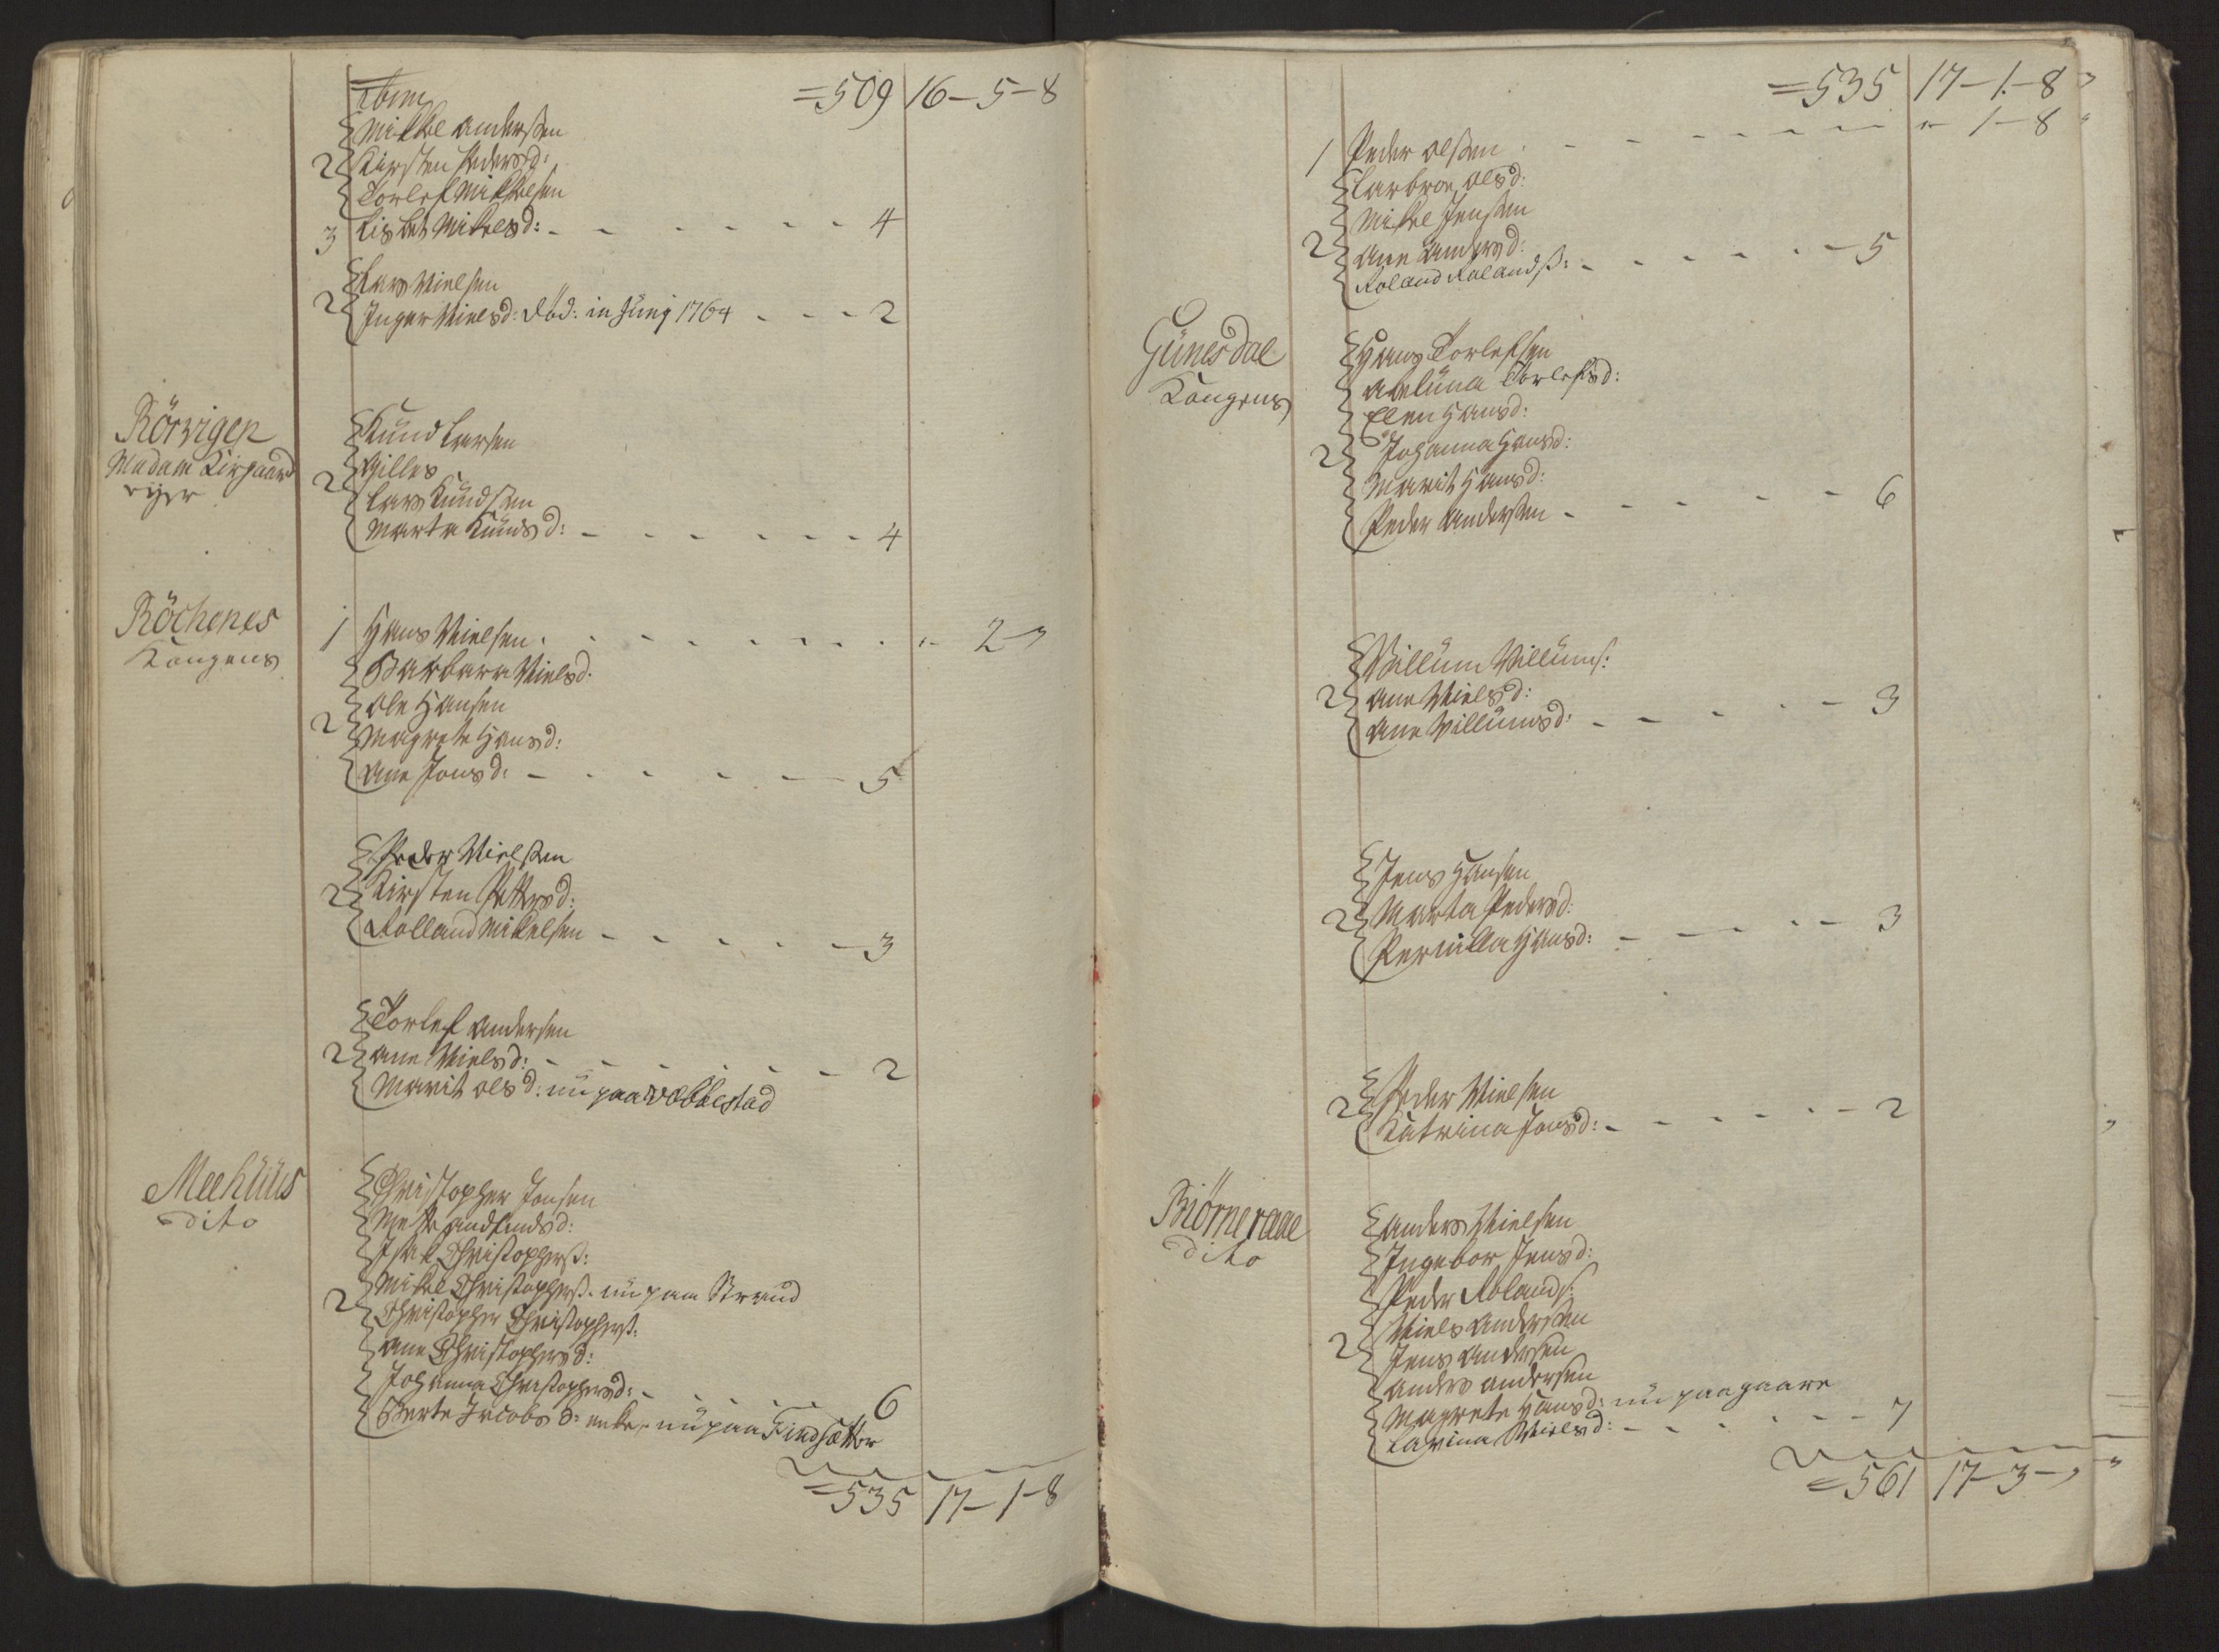 =509 16-5-8
Mikkel Andersen
2 Kirsten Peders d:
Torlef Mikkelsen
3 Lisbet Mikels d: - - - - - - 4
Lars Nielsen
2 Inger Niels d: död: in Junÿ 1764 - - - 2
Rörvigen
Madam Kirgaard
eÿer
Knud Larsen
Gilles
2 Lars Knudsen
Marta Knuds d: - - - - - - 4
Röchenes
Kongens
1 Hans Nielsen - - - - - - - 2-"
Barbara Niels d:
Ole Hansen
2 Magrete Hans d:
Ane Jons d: - - - - - 5
Peder Nielsen
2 Kirsten Petters d:
Rolland Mikelsen - - - - - 3
Torlef Andersen
2 Ane Niels d: - - - - - 2
Marit Ols d: nu paa Vebbestad
Meehuus
dito
Christopher Jonsen
Mette d:
Isak Christophers:
Mikel Christophers. nu paa Strand
2 Christopher Christophers:
Ane Christophers d:
Johanna Christophers d: - - - - 6
Berte Jacobs d: enke, nu paa Findsætter
=535 17-1-8
=535 17-1-8
1 Peder Olsen - - - - - - " 1-8
Olsd:
Mikel Jensen
2 Ane Anders d:
Roland Rolands: - - - - - 5
Gunesdal
Kongens
Hans Torlefsen
Abeluna Torlefs d:
Elen Hans d:
2 Johanna Hans d:
Marit Hans d:
Peder Andersen - - - - - 6
Villum Villums:
2 Ane Niels d:
Ane Villums d: - - - - - 3
Jens Hansen
2 Marta Peders d:
Pernilla Hans d: - - - - 3
2 Peder Nielsen
Katrina Jons d: - - - - - 2
Biörneraae
dito
Anders Nielsen
Ingebor Jens d:
Peder Rolands:
Niels Andersen
2 Jens Andersen
Anders Andersen
Magrete Hans d: nu paa gaare
Larina Niels d: - - - - - 7
=561 17-3-"